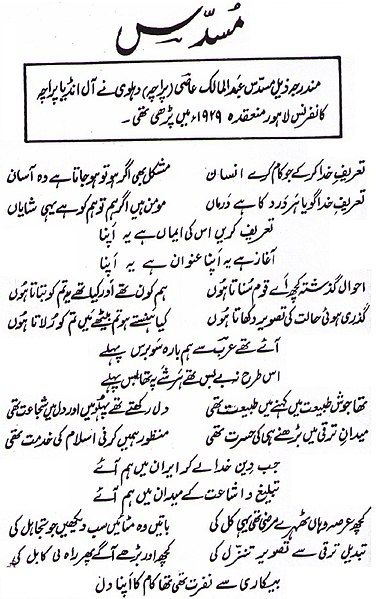 مسدّس
مندرجہ ذیل مسدّس عبدالمالک عاصی (پراچہ) دہلوی نے آل انڈیا پراچہ
کانفرنس لاہور منعقدہ ۱۹۲۹ء میں پڑھی تھی۔
تعریف خدا کر کے جو کام کرے انسان مشکل بھی اگر ہو تو ہو جاتا ہے وہ آسان
تعریف خدا گویا ہر درد کا ہے درماں مومن ہیں اگر ہم تو ہم کو ہے یہی شایاں
تعریف کریں اس کی ایماں ہے یہ اپنا
آغاز ہے یہ اپنا عنوان ہے یہ اپنا
احوالِ گذشتہ کچھ اے قوم سُناتا ہُوں ہم کون تھے اور کیا تھے یہ تم کو بتاتا ہُوں
گذری ہوئی حالت کی تصویر دکھاتا ہُوں کیا ہنستے ہو تم بیٹھے میں تم کو رُلاتا ہُوں
آئے تھے عرب سے ہم بارہ سو برس پہلے
اس طرح نہ بے بس تھے ہر شے پہ تھا بس پہلے
تھا جوش طبیعت میں کہنے میں طبیعت تھی دل رکھتے تھے پہلو میں اور دل میں شجاعت تھی
میدانِ ترقی میں بڑھنے ہی کی حسرت تھی منظور ہمیں کرنی اسلام کی خدمت تھی
جب دینِ خدا لے کر ایران میں ہم آئے
تبلیغ و اشاعت کے میدان میں ہم آئے
کچھ عرصہ وہاں ٹھہرے مرضی تھی یہی کل کی باتیں وہ مٹائیں سب دیکھیں جو تجاہل کی
تبدیل ترقی سے تصویر تنزّل کی کچھ اور بڑھے آگے پھر راہ لی کابل کی
بیکاری سے نفرت تھی تھا کام کا اپنا دل